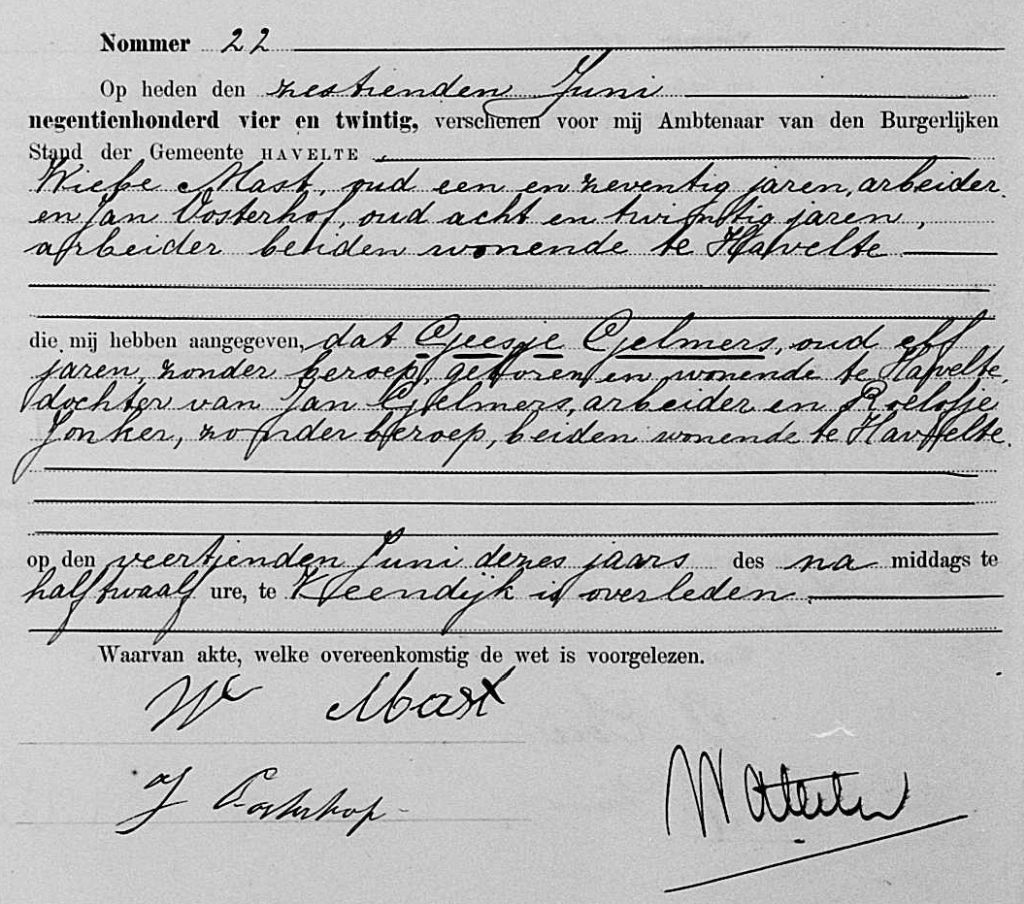 Nommer 22
Op heden den zestienden Juni
negentienhonderd vier en twintig, verschenen voor mij Ambtenaar van den Burgerlijken
Stand der Gemeente HAVELTE,
Wiebe Mast, oud een en zeventig jaren, arbeider
en Jan Oosterhof, oud acht en twintig jaren,
arbeider beiden wonende te Havelte
die mij hebben aangegeven, dat Geesje Gjelmers, oud elf
jaren, zonder beroep, geboren en wonende te Havelte,
dochter van Jan Gjelmers, arbeider en Roelofje
Jonker, zonder beroep, beiden wonende te Havelte.
op den veertienden Juni dezes jaars des na middags te
half twaalf ure, te Veendijk is overleden.
Waarvan akte, welke overeenkomstig de wet is voorgelezen.
W Mast
J Oosterhof